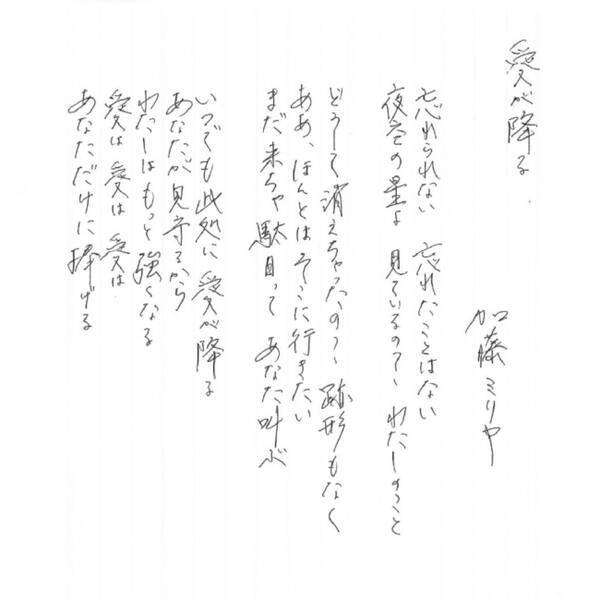 愛が降る
加藤ミリヤ
忘れられない 忘れたことはない
夜空の星よ 見ているの？、わたしのこと
どうして消えちゃったの？、跡形もなく
ああ、ほんとはそこに行きたい
まだ来ちゃ駄目って あなた叫ぶ
いつでも此処に 愛が降る
あなたが見守るから
わたしはもっと強くなる
愛は 愛は 愛は
あなただけに捧げる